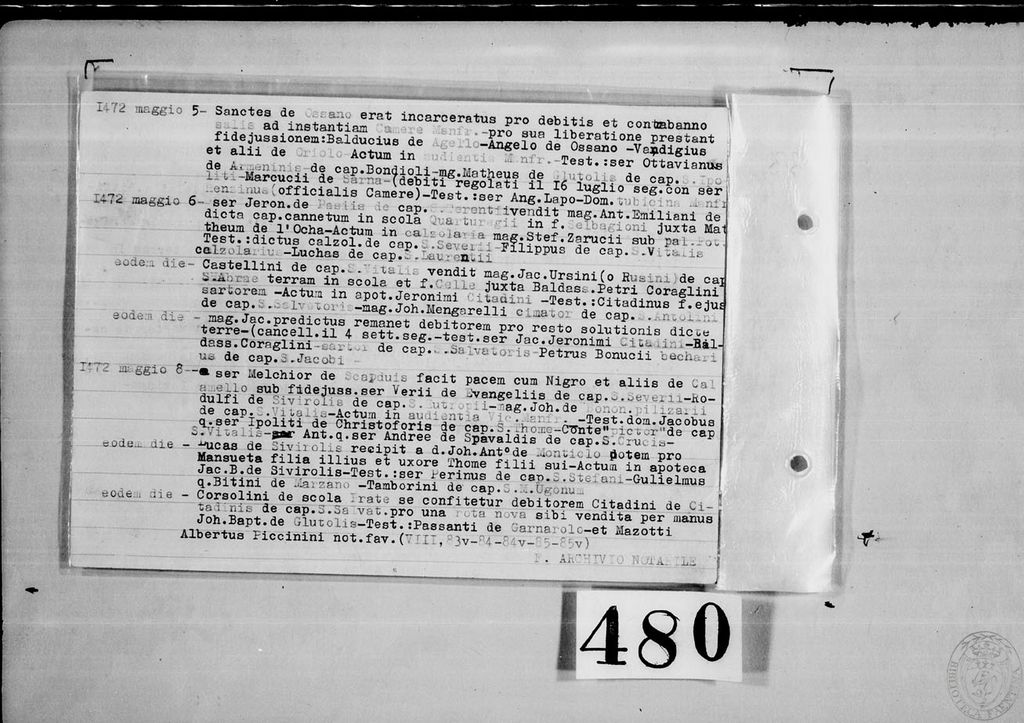 1472 maggio 5- Sanctes de Ossano erat incarceratus pro debitis et contrabanno
salis ad instantiam Camere Manfr.-pro sua liberatione prestant
fidejussionem:Balducius de Agello-Angelo de Ossano -Vandigius
et alii de Oriolo-Actum in audientia Manfr.-Test.:ser Ottavianus
de Armeninis-de cap.Bondioli-mg.Matheus de Glutolis de cap.S.Ipo
liti-Marcucii de Sarna-(debiti regolati il 16 luglio seg.con ser
(officialis Camere)-Test.:ser Ang.Lapo-Dom.tubicina Manfr
1472 maggio 6- ser Jeron.de Pasiis de cap.S.Terentii vendit mag.Ant.Emiliani de
dicta cap.cannetum in scola Quarturegii in f.Selbagioni juxta Mat
theum de l'Ocha-Actum in calzolaria mag.Stef.Zarucii sub pal.Pot.
Test.:dictus calzol.de cap.S.Severii-Filippus de cap.S.Vitalis
calzolarius-Luchas de cap.S.Laurentii
eodem die- Castellini de cap.S.Vitalis vendit mag.Jac.Ursini(o Rusini)de cap
S.Abrae terram in scola et f.Celle juxta Baldass.Petri Coraglini
sartorem -Actum in apot.Jeronimi Citadini -Test.:Citadinus f.ejus
de cap.S.Salvatoris-mag.Joh.Mengarelli cimator de cap.S.Antolini
eodem die - mag.Jac.predictus remanet debitorem pro resto solutionis dicte
terre-(cancell.il 4 sett.seg.-test.ser Jac.Jeronimi Citadini-Bal-
dass.Coraglini-sartor de cap.S.Salvatoris-Petrus Bonucii bechari
us de cap.S.Jacobi
1472 maggio 8-- ser Melchior de Scapduis facit pacem cum Nigro et aliis de Cal
amello sub fidejuss.ser Verii de Evangeliis de cap.S.Severii-Ro-
dulfi de Sivirolis de cap.S.Eutropii-mag.Joh.de Bonon.pilizarii
de cap.S.Vitalis-Actum in audientia Vic.Manfr. -Test.dom.Jacobus
q.ser Ipoliti de Christoforis de cap.S.Thome-Conte"pictor"de cap
S.Vitalis- Ant.q.ser Andree de Spavaldis de cap.S.Crucis-
eodem die - Lucas de Sivirolis recipit a d.Joh.Ant° de Monticlo dotem pro
Mansueta filia illius et uxore Thome filii sui-Actum in apoteca
Jac.B.de Sivirolis-Test.:ser Perinus de cap.S.Stefani-Gulielmus
q.Bitini de Marzano -Tamborini de cap.S.M.Ugonum
eodem die - Corsolini de scola Prate se confitetur debitorem Citadini de Ci-
tadinis de cap.S.Salvat.pro una rota nova sibi vendita per manus
Joh.Bapt.de Glutolis-Test.:Passanti de Garnarolo-et Mazotti
Albertus Piccinini not.fav.(VIII,83v-84-84v-85-85v)
F. ARCHIVIO NOTARILE
480
BIBLIOTECA FAENTINA